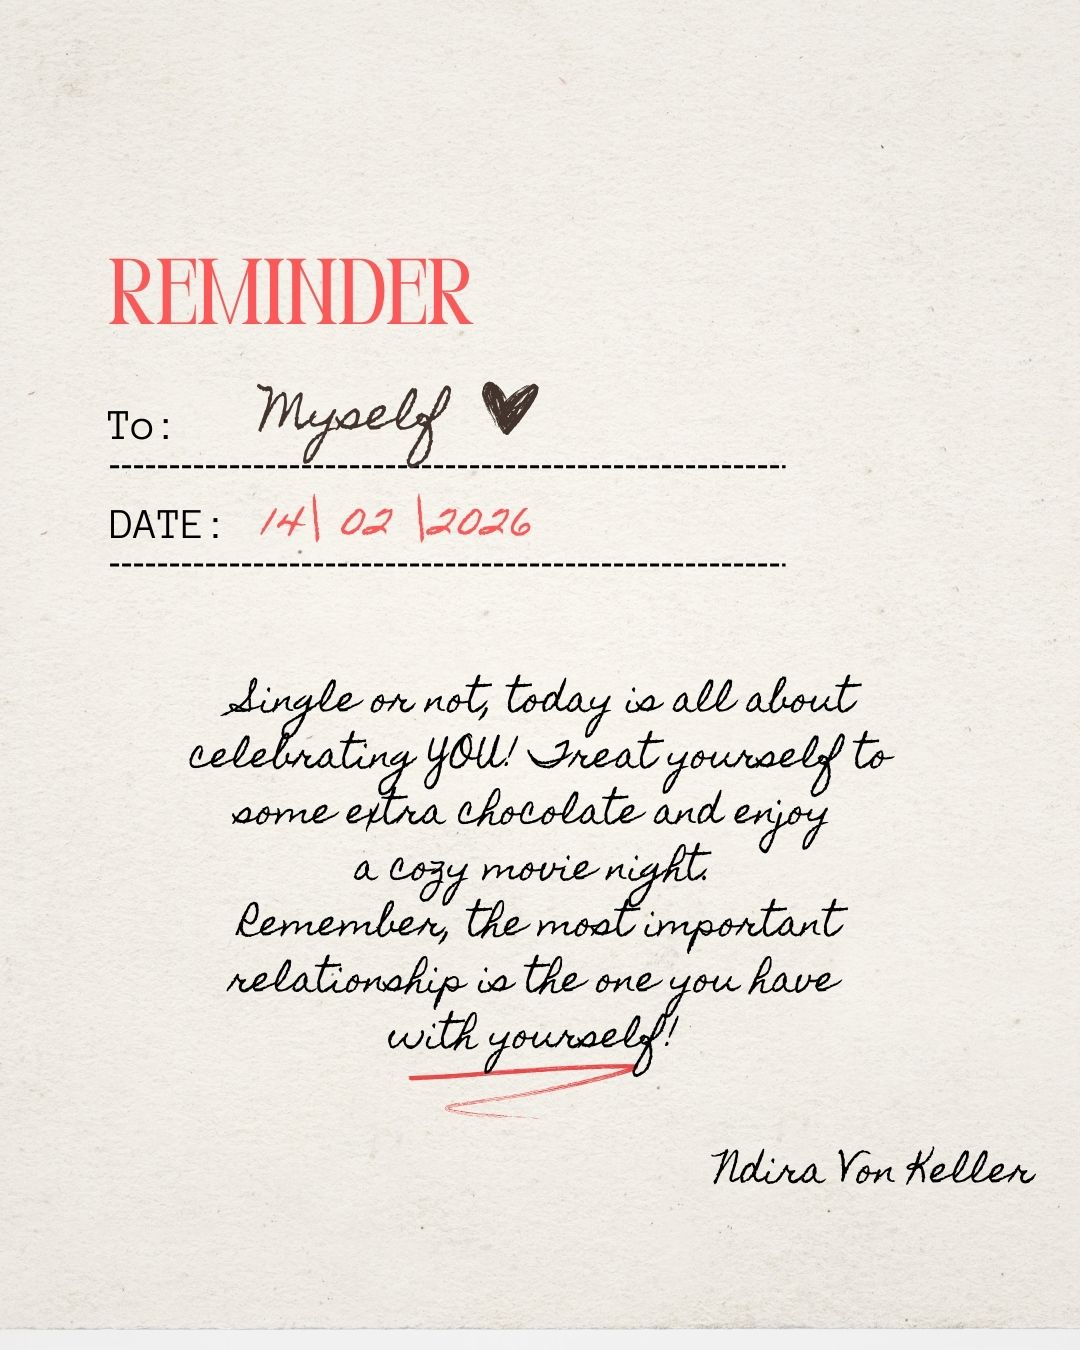 REMINDER
To: Myself
DATE: 14| 02 |2026
Single or not, today is all about
celebrating YOU! Treat yourself to
some extra chocolate and enjoy
a cozy movie night.
Remember, the most important
relationship is the one you have
with yourself!
Ndira Von Keller